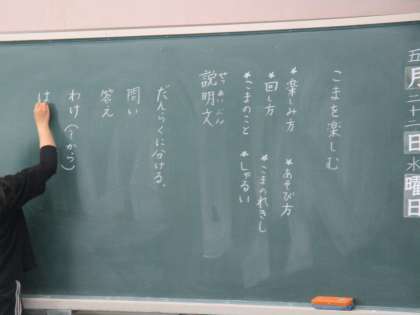 五月二十二日水曜日
こまを楽しむ
*楽しみ方 *あそび方
*回し方 *こまのれきし
*こまのこと *しゅるい
せつめいぶん
説明文
だんらくに分ける。
問い
答え
わけ(〜から)
は